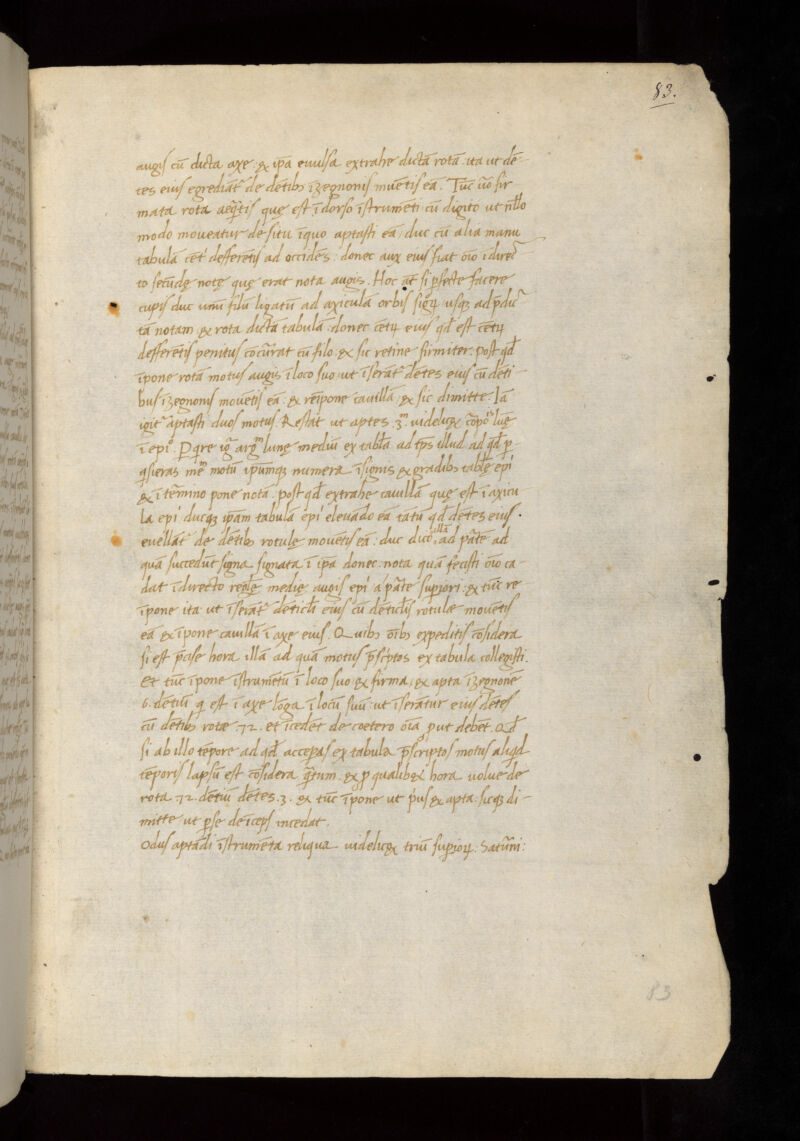 83.
augis cū dicta axe. & ip̄a euulsa extrahe dictā rotā. ita ut dē-
tes eius egrediāt' de dētib3 i3egnonis mouētis eā. Tūc u̅o fir
mata rota aeq̄tis que est ī dorso īstrumēti cū digito ut nllo
modo moueatur de situ ī quo aptasti eā: duc cū alia manu
tabulā cēt' defferētis ad occidēs: donec aux eius fiat oīo ī direc̄
to secūdę notę quę erat nota augis. Hoc at̄ si p̄fecte facere
cupis duc unū filū ligatū ad axiculā orbis signoꝝ usq3 ad p̄dic̄
tā notam & rota dictā tabulā: donec cētꝝ eius qd̄ est cētꝝ
defferētis penitus cōcurat cū filo. & sic retine firmiter. post qd̄
īpone rotā motus augis ī loco suo ut īserāt' dētes eius cū dēti
bus i3egnonis mouētis eā: & reīpone cauillā & sic dimitte. Iā
igit' aptasti duos motus. Restat ut aptes .3.m uidelicet cōpo' lunę
ī epi°. Pqire ig' argm lunę mediū ex tabl'a ad tp̄s illud ad qd̄ p
q̄sieras me' motū ipumq3 numera ī signis & gradib3 tablę epi'
& ī termino pone notā. post qd̄ extrahe cauillā que est ī axicu
la epi' ducq3 ip̄am tabulā epi' eleuādo eā tātū qd̄ dētes eius
euellāt' de dētib3 rotulę mouētis eā: duc illā ad p̄te ad
quā succedūt signa signata ī ip̄a donec nota quā fecisti oīo ca-
dat ī directo regl'ę medię augis epi' a p̄te superiori. & tūc re
īpone ita ut īserāt' dēticl'i eius cū dēticl'is rotulæ mouētis
eā & īpone cauillā ī axe eius. Quib3 oīb3 expeditis cōsidera
si est p̄cise hora illā ad quā motus p̄sc̄ptos ex tabula collegisti.
Et tūc īpone īstrumētū ī loco suo & firma. & apta i3egnone
6. dētiū q est ī axe lōga ī locū suū ut īserātur eius dētes
cū dētib3 rotæ .72. et īcedēt de coetero oīa put debēt. Qd̄
si ab illo tēpore ad qd̄ acceperas ex tabula p̄scriptos motus aliqd
tēporis lapsū est cōsidera q̄tum. & p qualibet hora uolue de
rota 72. dētiū dētes .3. & tūc īpone ut p̄us & apta. sicq3 di-
mitte ut p̄se deīceps incedat.
Odus aptādi īstrumēta reliqua uidelicet triū superioꝝ. Saturni:
83